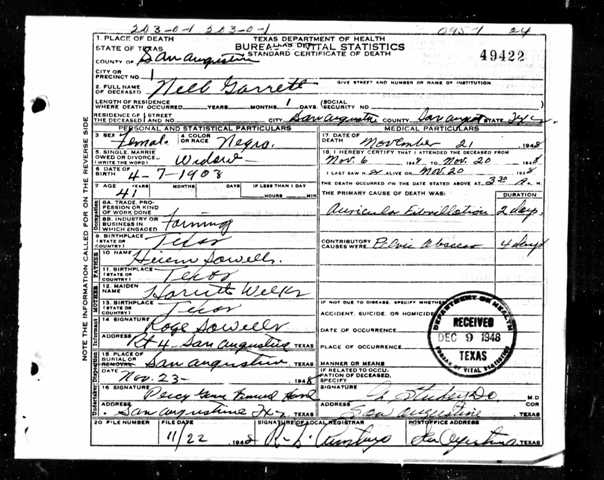 203-0-1 203-0-1 24
1. PLACE OF DEATH TEXAS DEPARTMENT OF HEALTH
STATE OF TEXAS BUREAU VITAL STATISTICS
COUNTY OF San Augustine STANDARD CERTIFICATE OF DEATH 49422
CITY OR PRECINCT NO. 1 GIVE STREET AND NUMBER OR NAME OF INSTITUTION
2. FULL NAME OF DECEASED Nell Garrett
LENGTH OF RESIDENCE WHERE DEATH OCCURRED YEARS MONTHS DAYS SOCIAL SECURITY NO.
RESIDENCE OF THE DECEASED STREET AND NO. CITY San Augustine COUNTY San Augst STATE Tex
PERSONAL AND STATISTICAL PARTICULARS MEDICAL PARTICULARS
3. SEX Female 4. COLOR OR RACE Negro 17. DATE OF DEATH November 21 1948
5. SINGLE, MARRIED, WIDOWED OR DIVORCED (WRITE THE WORD) Widow
18. I HEREBY CERTIFY THAT I ATTENDED THE DECEASED FROM
Nov. 6 1948 TO Nov. 20 1948
6. DATE OF BIRTH 4-7-1908 I LAST SAW ALIVE ON Nov. 20 1948
7. AGE 41 YEARS MONTHS DAYS IF LESS THAN 1 DAY HOURS MIN
THE DEATH OCCURRED ON THE DATE STATED ABOVE AT M.
8A. TRADE, PROFESSION OR KIND OF WORK DONE THE PRIMARY CAUSE OF DEATH WAS: DURATION
Auricular Fibrillation 2 days
8B. INDUSTRY OR BUSINESS IN WHICH ENGAGED farming
9. BIRTHPLACE (STATE OR COUNTRY) Texas CONTRIBUTORY CAUSES WERE: Pelvic Abscess 4 days
10. NAME Hiram Sowells.
11. BIRTHPLACE (STATE OR COUNTRY) Texas
12. MAIDEN NAME Harriett Welks
13. BIRTHPLACE (STATE OR COUNTRY) Texas IF NOT DUE TO DISEASE, SPECIFY WHETHER:
ACCIDENT, SUICIDE, OR HOMICIDE
14. SIGNATURE Roge Sowells DATE OF OCCURRENCE
ADDRESS Rt 4 San Augustine TEXAS PLACE OF OCCURRENCE
15. PLACE OF BURIAL OR REMOVAL San Augustine TEXAS MANNER OR MEANS
DATE Nov. 23- 1948 IF RELATED TO OCCUPATION OF DECEASED, SPECIFY
16. SIGNATURE Percy Funeral Home SIGNATURE M.D.
ADDRESS San Augustine Tex TEXAS ADDRESS San Augustine TEXAS
20. FILE NUMBER FILE DATE SIGNATURE OF LOCAL REGISTRAR POSTOFFICE ADDRESS
11/22 1948 San Augustine TEXAS
DEPARTMENT OF HEALTH
RECEIVED
DEC 9 1948
TEXAS
BUREAU OF VITAL STATISTICS
NOTE THE INFORMATION CALLED FOR ON THE REVERSE SIDE
Occupation
FATHER
MOTHER
Informant
Disposition
Undertaker